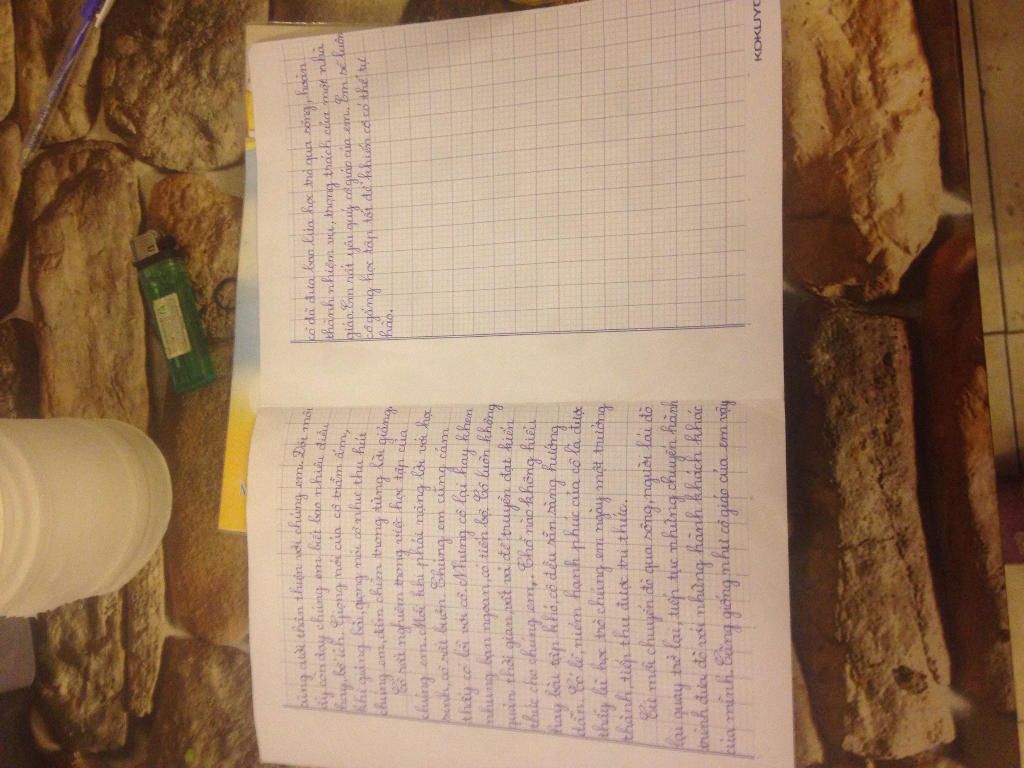 cùng cởi thân thiện với chúng em. Đôi môi
ấy còn dạy chúng em biết bao nhiêu điều
hay bổ ích. Giọng nói của cô trầm ấm,
khi giảng bài, giọng nói cô như thu hút
chúng em, đắm chìm trong từng lời giảng.
Cô rất nghiêm trong việc học tập của
chúng em. Mỗi khi phải nặng lời với học
sinh cô rất buồn. Chúng em cũng cảm
thấy có lỗi với cô. Nhưng cô lại hay khen
những bạn ngoan, có tiến bộ. Cô luôn không
quản thời gian, vất vả để truyền đạt kiến
thức cho chúng em. Chỗ nào không hiểu
hay bài tập khó, cô đều sẵn sàng hướng
dẫn. Có lẽ, niềm hạnh phúc của cô là được
thấy lũ học trò chúng em ngày một trưởng
thành, tiếp thu được tri thức.
Cứ mỗi chuyến đò qua sông, người lái đò
lại quay trở lại, tiếp tục những chuyến hành
trình đưa đò với những hành khách khác
của mình. Cũng giống như cô giáo của em vậy
cô đã đưa bao lứa học trò qua sông, hoàn
thành nhiệm vụ, trọng trách của một nhà
giáo. Em rất yêu quý cô giáo của em. Em sẽ luôn
cố gắng học tập tốt để khiến cô có thể tự
hào.
KOKUYO